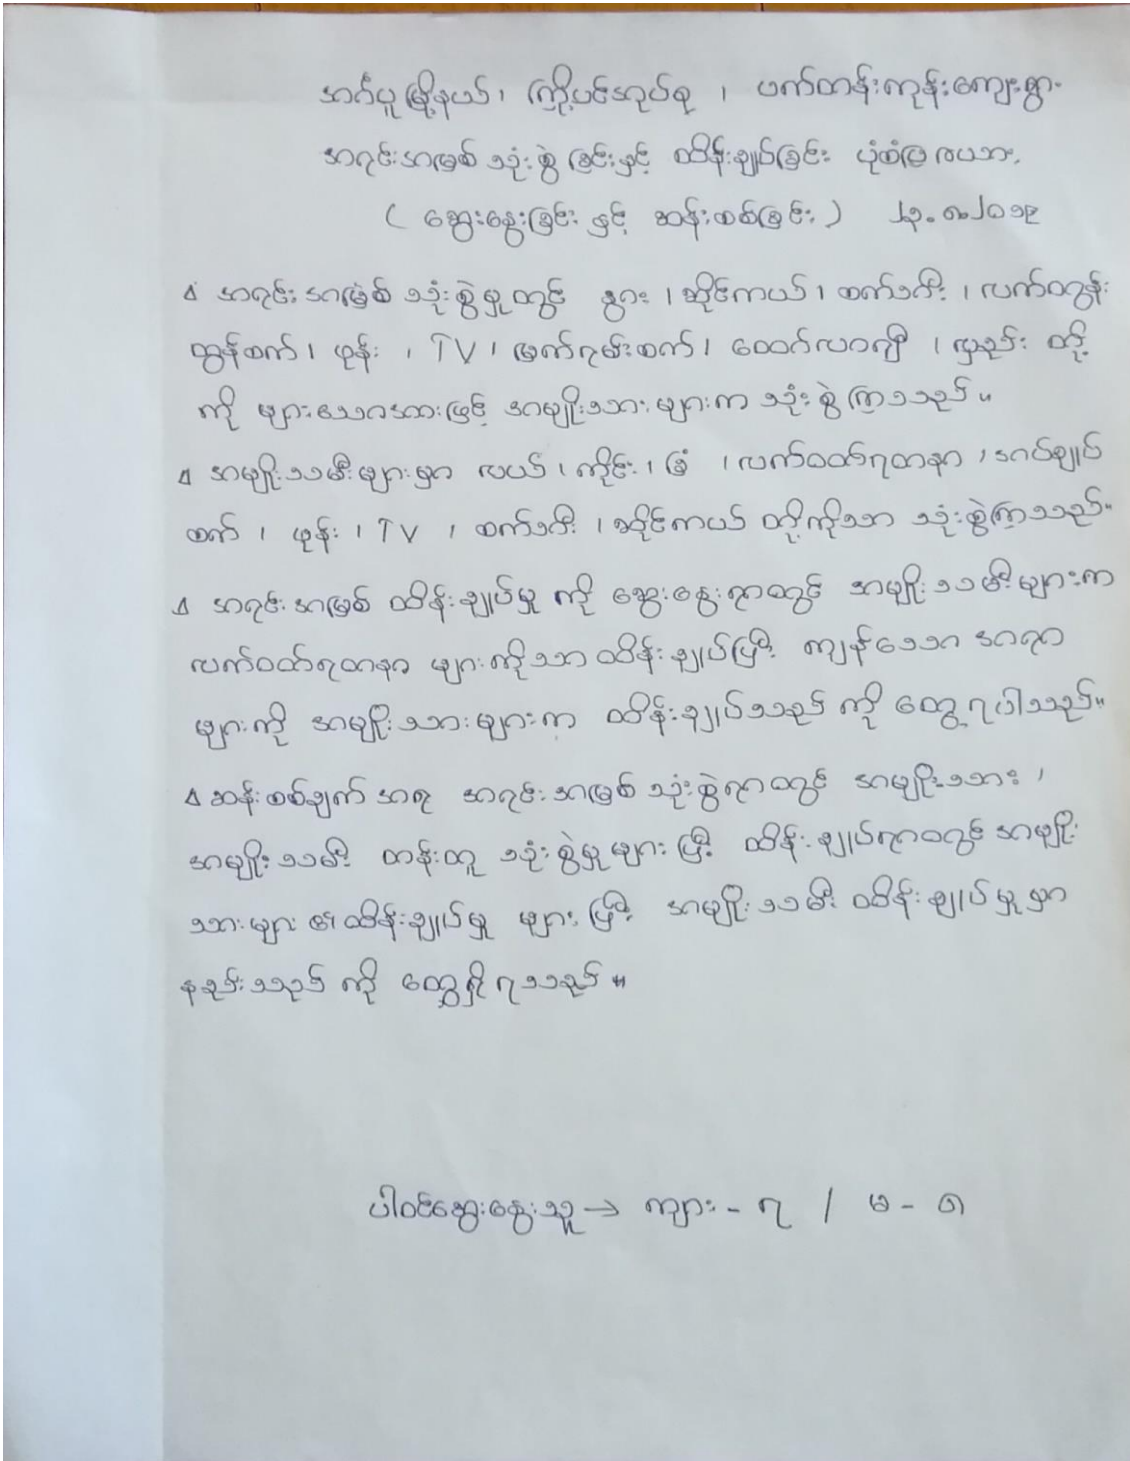 အင်္ဂပူမြို့နယ်၊ ကြို့ပင်အုပ်စု ၊ ဖက်တန်းကုန်းကျေးရွာ
အရင်းအမြစ် သုံးစွဲခြင်းနှင့် ထိန်းချုပ်ခြင်း ပုံစံပြဇယား
( ဆွေးနွေးခြင်း နှင့် ဆန်းစစ်ခြင်း ) ၂၃.၈.၂၀၁၉
∆ အရင်းအမြစ် သုံးစွဲမှုတွင် နွား ၊ ဆိုင်ကယ် ၊ စက်ဘီး ၊ လက်တွန်း
ထွန်စက် ၊ ဖုန်း ၊ TV ၊ မြက်ရမ်းစက် ၊ ထော်လာဂျီ ၊ လှည်း တို့
ကို များသောအားဖြင့် အမျိုးသားများက သုံးစွဲကြသည် ။
∆ အမျိုးသမီးများမှာ လယ် ၊ ကိုင်း ၊ ခြံ ၊ လက်ဝတ်ရတနာ ၊ အပ်ချုပ်
စက် ၊ ဖုန်း ၊ TV ၊ စက်ဘီး ၊ ဆိုင်ကယ် တို့ကိုသာ သုံးစွဲကြသည်။
∆ အရင်းအမြစ် ထိန်းချုပ်မှု ကို ဆွေးနွေးရာတွင် အမျိုးသမီးများက
လက်ဝတ်ရတနာ များကိုသာ ထိန်းချုပ်ပြီး ကျန်သော အရာ
များကို အမျိုးသားများက ထိန်းချုပ်သည် ကို တွေ့ရပါသည်။
∆ ဆန်းစစ်ချက် အရ အရင်းအမြစ် သုံးစွဲရာတွင် အမျိုးသား ၊
အမျိုးသမီး တန်းတူ သုံးစွဲမှုများ ပြီး ထိန်းချုပ်ရာတွင် အမျိုး
သားများ ၏ ထိန်းချုပ်မှု များ ပြီး အမျိုးသမီး ထိန်းချုပ်မှု မှာ
နည်းသည် ကို တွေ့ရှိရသည် ။
ပါဝင်ဆွေးနွေးသူ → ကျား - ၇ / မ - ၈